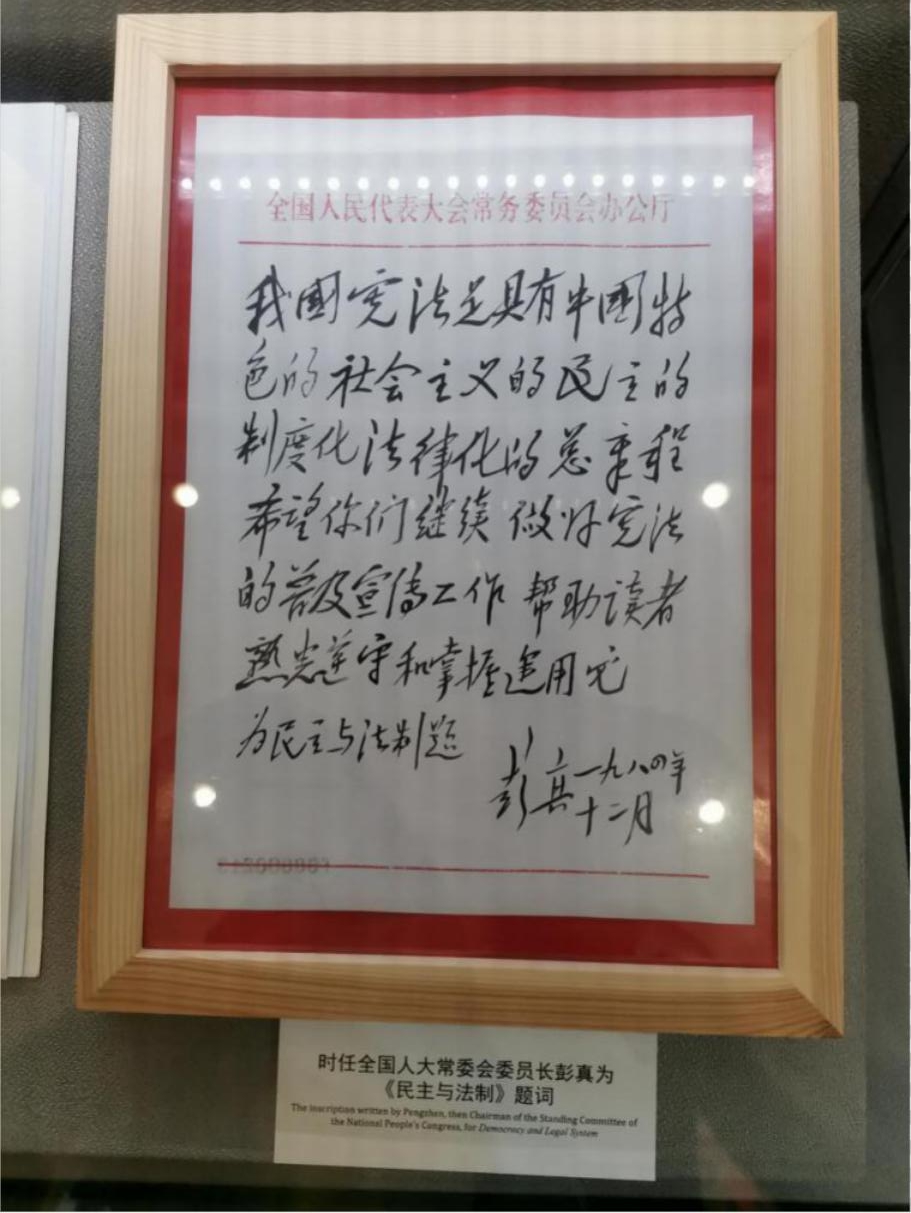 全国人民代表大会常务委员会办公厅
我國宪法是具有中國特
色的社会主义的民主的
制度化法律化的总章程
希望你们继续做好宪法
的普及宣传工作 帮助读者
熟悉遵守和掌握运用它
为民主与法制题
彭真一九八四年
十二月
时任全国人大常委会委员长彭真为
《民主与法制》题词
The inscription written by Pengzhen, then Chairman of the Standing Committee of
the National People's Congress, for Democracy and Legal System